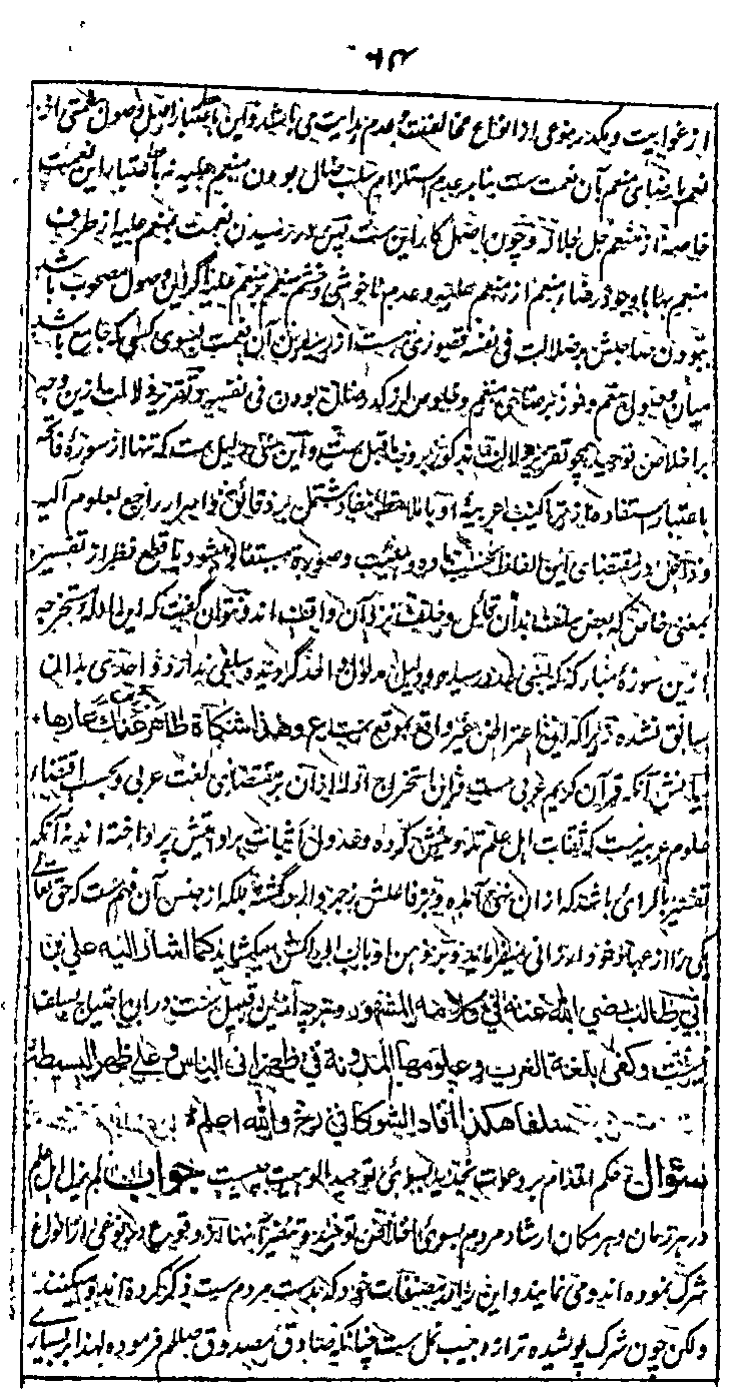 از غوایت و یکدر نوعی از انواع مخالفت و عدم هدایت می باشد و این باعتبار اصل وصول نعمتی از
نعم با رضای منعم بآن نعمت ست بنابر عدم استلزام سلب ضال بودن منعم علیه نه باعتبار این نعمت
خاصه از منعم جل جلاله و چون اصل کار این ست پس در رسیدن نعمت بمنعم علیه از طرف
منعم بها با وجود رضاء منعم از منعم علیه و عدم ناخوشی و خشم منعم بر منعم علیه اگر این وصول مصحوب باشد
ببودن صاحبش بر ضلالت فی نفسه قصوری هست از رسیدن آن نعمت بسوی کسی که جامع باشد
میان وصول نعم و فوز برضای منعم و خلوص از کدر ضال بودن فی نفسه و تقریر دلالت ازین وجه
بر اخلاص توحید همچو تقریر دلالت مذکور بر وجه ماقبل ست و این سی دلیل ست که تنها از سورهٔ فاتحه
باعتبار استفاده از تراکیب عربیه او با ملاحظه مفاد مشتمل بر دقائق و اسرار راجع بعلوم آلیه
و داخل در مقتضای این الفاظ بحسب ماده و هیئت و صورت مستفاد میشود با قطع نظر از تفسیر
بمعنی خاص که بعض سلف بدان قائل و خلف نزد آن واقف اند و نتوان گفت که این ادله مستخرجه
ازین سورهٔ مبارکه که بسی عدد رسیده و دلیل مدلول واحد گردیده سلفی ندارد و احدی بدان
سابق نشده زیرا که این اعتراض غیر واقع بموقع ست ع وهذا شکاة ظاهر عنک عارها
بیانش آنکه قرآن کریم عربی ست و این استخراج ادله از آن بر مقتضای لغت عربی و بحسب اقتضاء
علوم عربیه است که ثقات اهل علم تدوینش کرده و عدول اثبات بروایتش پرداخته اند نه آنکه
تفسیر بالرای باشد که از ان نهی آمده و بر فاعلش زجر وارد گشته بلکه از جنس آن فهم ست که حق تعالی
یکی را از عباد خود ارزانی میفرماید و بر ذهن او باب ادراکش میکشاید کما اشار الیه علی بن
ابی طالب رضی الله عنه فی کلامه المشهور و هرچه ازین قبیل ست دران احتیاج بسلف
نیست وکفی بلغة العرب وعلومها المدونة فی ظهرانی الناس وعلی ظهر البسیطة
سلفا هکذا افاد الشوکانی رح والله اعلم
سؤال حکم اقدام بر دعوات جدید بسوی توحید الوهیت چیست جواب لم یزل اهل علم
در هر زمان و هر مکان ارشاد مردم بسوی اخلاص توحید و تنفیر آنها از وقوع در نوعی از انواع
شرک نموده اند و می نمایند و این را در مصنفات خود که بدست مردم ست ذکر کرده اند و میکنند
ولکن چون شرک پوشیده تر از دبیب نمل ست چنانکه صادق مصدوق صللم فرموده لهذا بر بسیاری